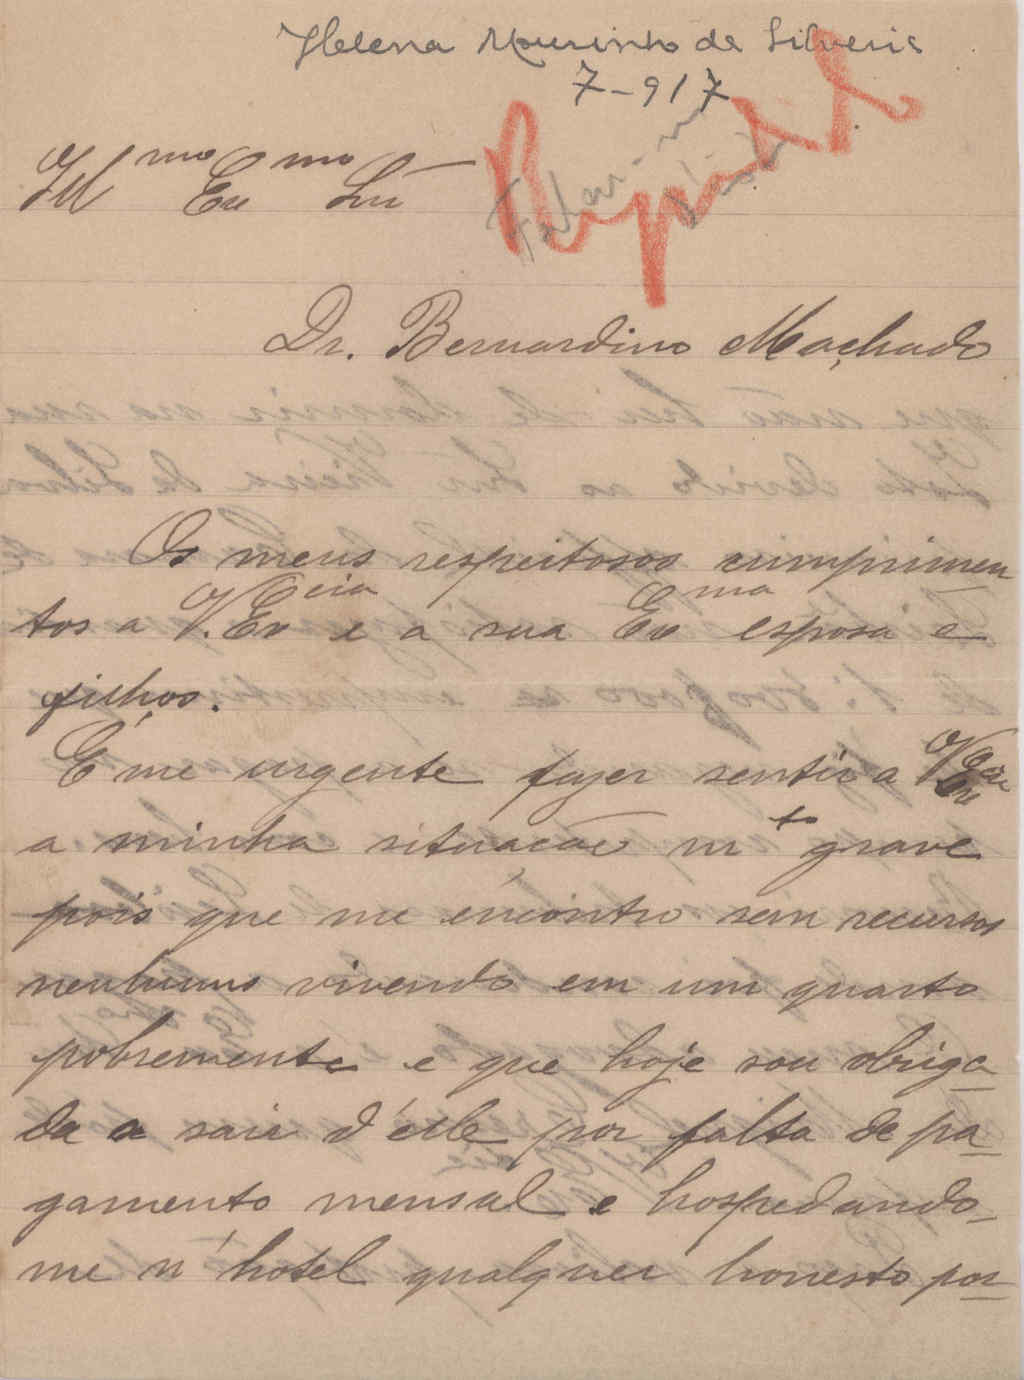 Helena Mourinho da Silveira
7-917
Respondido
Falar
Ill.mo Ex.mo Snr
Dr. Bernardino Machado
Os meus respeitosos cumprimen
tos a V. Ex.cia e a sua Ex.ma esposa e
filhos.
É me urgente fazer sentir a V. Ex.cia
a minha situação m.to grave
pois que me encontro sem recursos
nenhuns vivendo em um quarto
pobremente e que hoje sou obriga-
da a sair d'elle por falta de pa-
gamento mensal e hospedando-
me n'hotel qualquer honesto por-